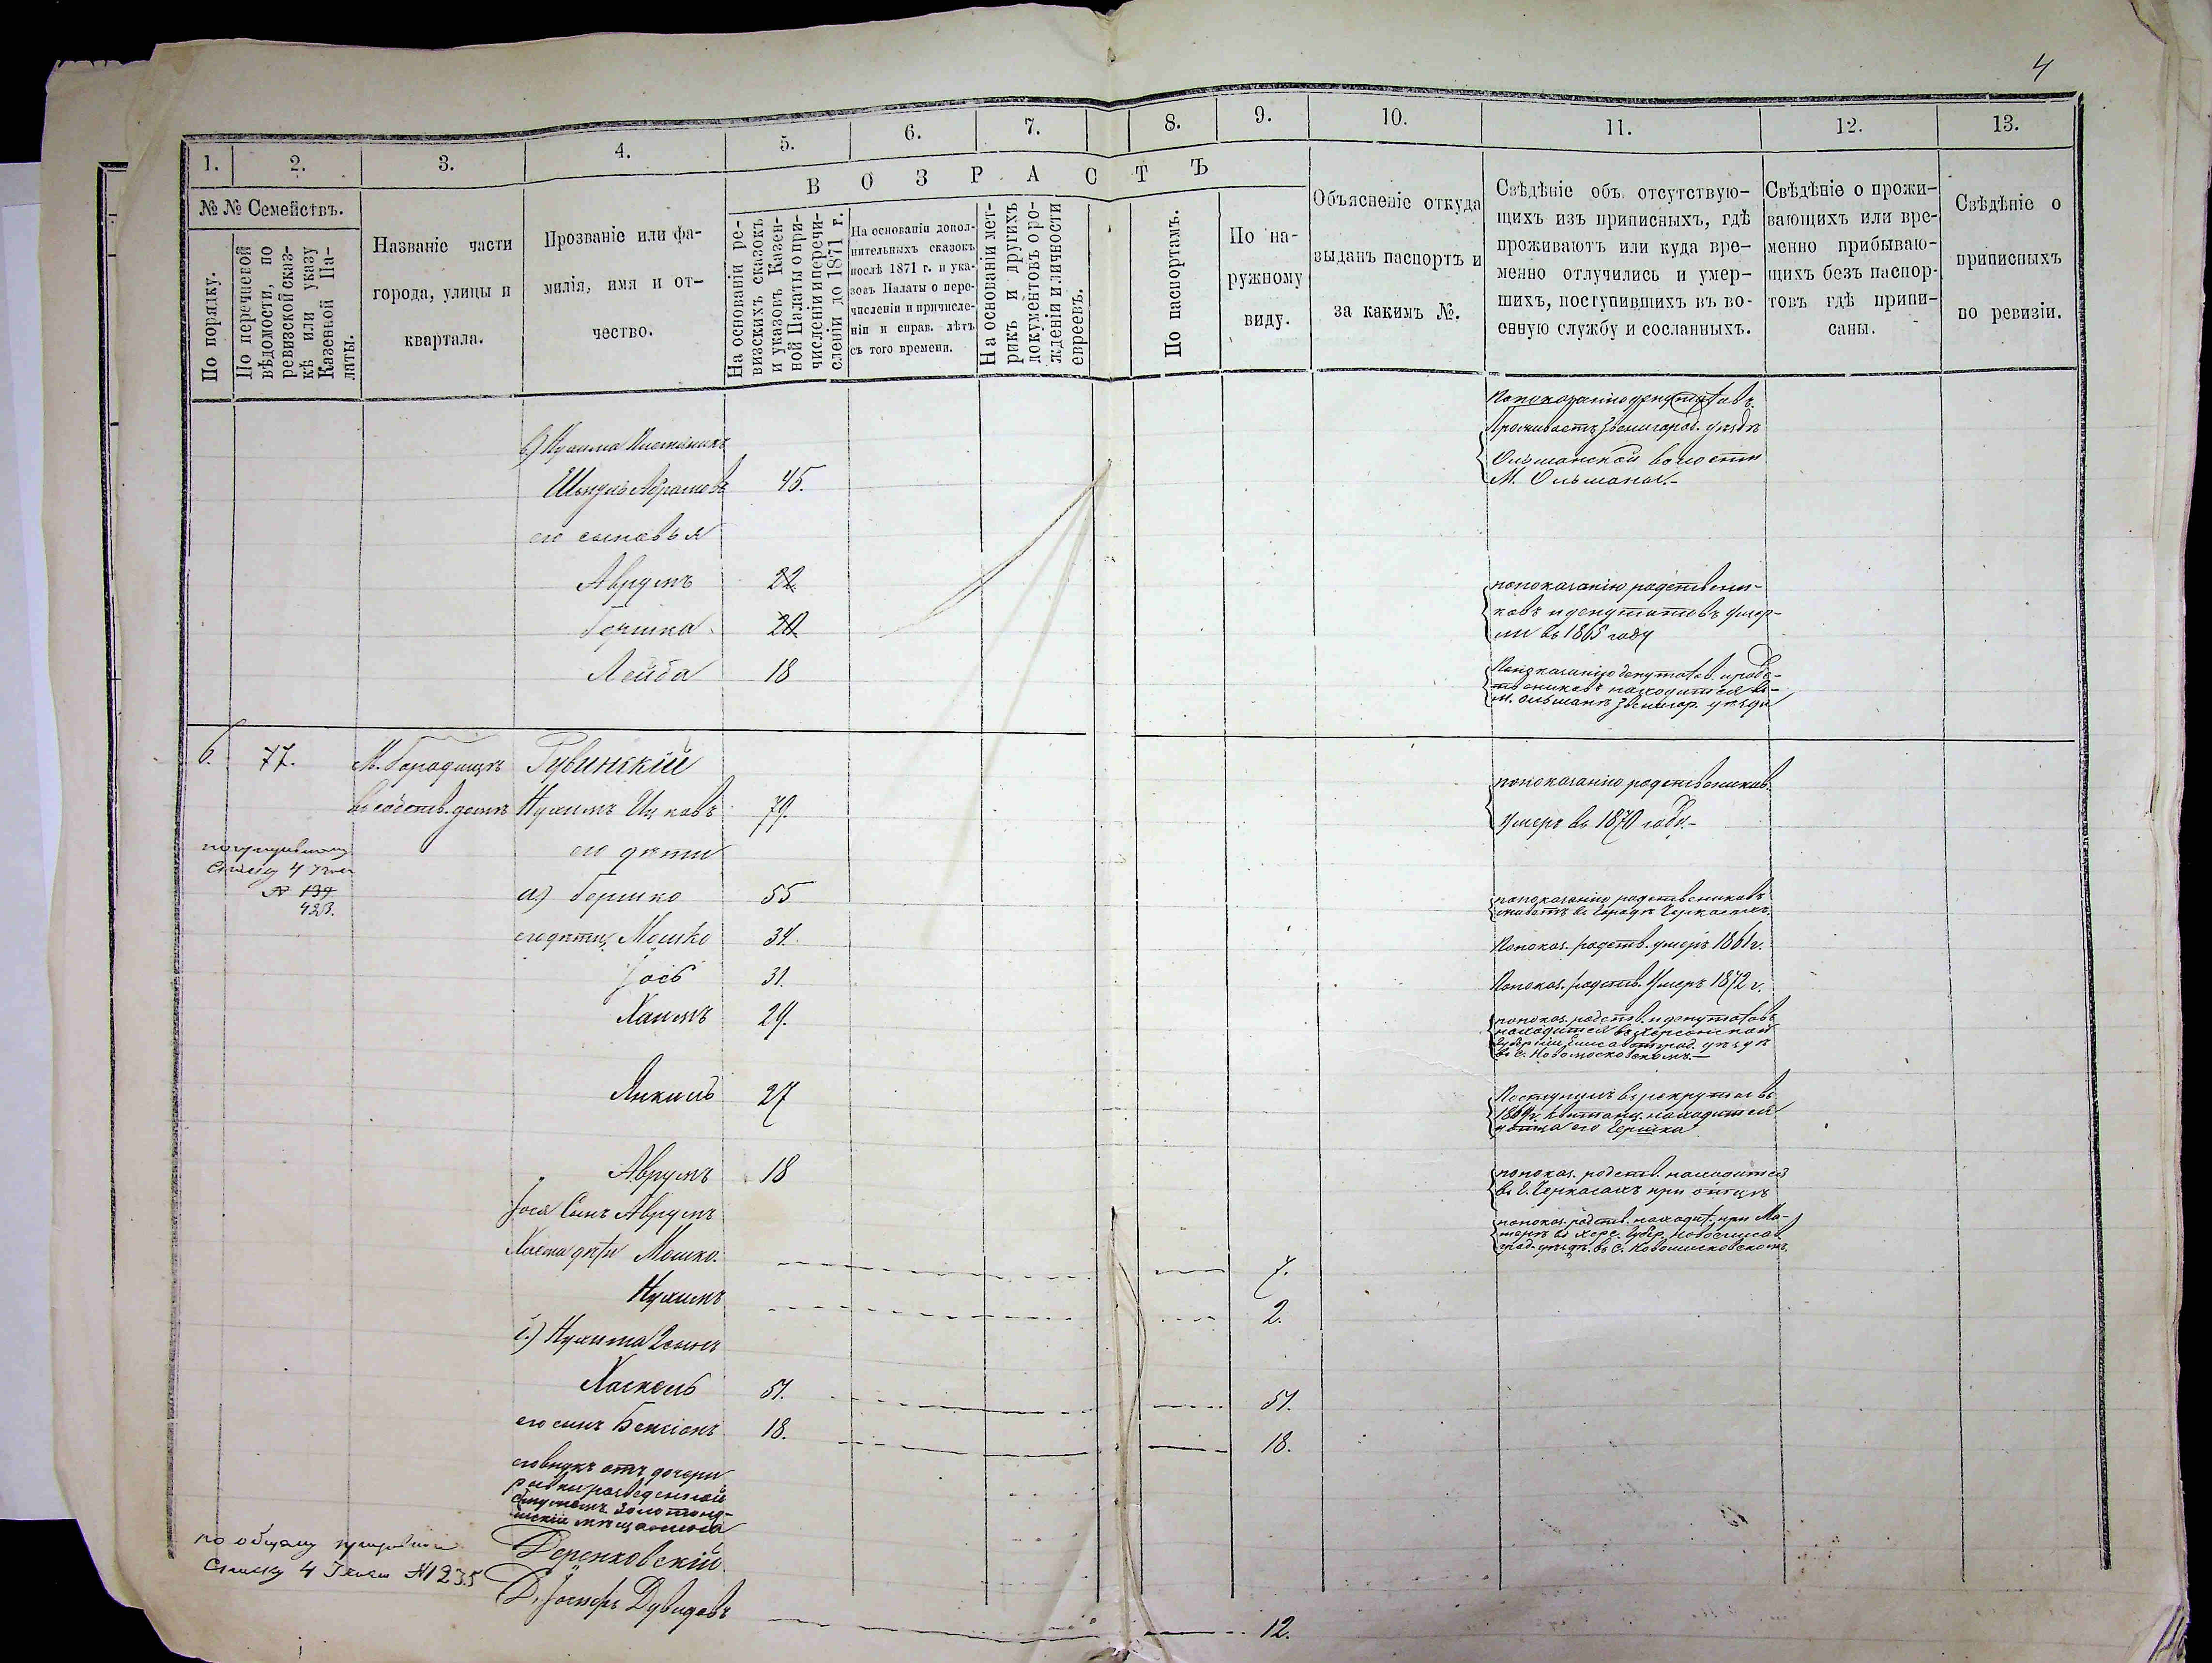 4
1. 2. 3. 4. 5. 6. 7. 8. 9. 10. 11. 12. 13.
№ № Семействъ.
По порядку.
По перечневой
вѣдомости, по
ревизской сказ-
кѣ или указу
Казенной Па-
латы.
Названіе части
города, улицы и
квартала.
Прозваніе или фа-
милія, имя и от-
чество.
ВОЗРАСТЪ
На основаніи ре-
визскихъ сказокъ
и указовъ Казен-
ной Палаты о при-
численіи и перечи-
сленіи до 1871 г.
На основаніи допол-
нительныхъ сказокъ
послѣ 1871 г. и ука-
зовъ Палаты о пере-
численіи и причисле-
ніи и справ. лѣтъ
съ того времени.
На основаніи мет-
рикъ и другихъ
документовъ о ро-
жденіи и личности
евреевъ.
По паспортамъ.
По на-
ружному
виду.
Объясненіе откуда
выданъ паспортъ и
за какимъ №.
Свѣдѣніе объ отсутствую-
щихъ изъ приписныхъ, гдѣ
проживаютъ или куда вре-
менно отлучились и умер-
шихъ, поступившихъ въ во-
енную службу и сосланныхъ.
Свѣдѣніе о прожи-
вающихъ или вре-
менно прибываю-
щихъ безъ паспор-
товъ гдѣ припи-
саны.
Свѣдѣніе о
приписныхъ
по ревизіи.
в) Нухима
Шмуль Абрамовъ 45.
По показанію депутатовъ
Проживаетъ Звенигород. уѣздѣ
Ольшанской волости
М. Ольшаны.-
его сыновья
Аврумъ 22
Гершка 20
по показанію родственни-
ковъ и депутатовъ умер-
ли въ 1865 году
Лейба 18
депутатов. и родс-
твениковъ находится въ-
м. Ольшанѣ Звенигор. уѣзда
6. 77. М. Городищѣ Рувинскій
въ собств. домѣ Нухимъ Ицковъ 79.
по показанію родствеников.
умеръ въ 1870 году.-
его дѣти
списку 4
№ 139
423.
а) Гершко 55
по показанію родствениковъ
живетъ въ городѣ Черкасахъ.
его дѣти, Мошко 34.
По показ. родств. умеръ 1861 г.
Іось 31.
По показ. родств. Умеръ 1872 г.
Хаимъ 29.
по показ. родств. и депутатовъ
находится въ Херсонской
Губерніи Елисаветград. уѣздѣ
въ с. Новомосковскомъ.-
Янкель 27
Поступилъ въ рекруты въ
1869 г. квитанц. находится
у отца его Гершка
Аврумъ 18
по показ. родств. находится
въ Г. Черкасахъ при отцѣ
Іося Сынъ Аврумъ
Хаима дѣти Мошко. 7.
по показ. родств. находит. при Ма-
тери въ Херс. Губер.
град. уѣздѣ. въ с. Новомосковскомъ.
Нухимъ 2.
Нухима 2 сынъ
Хаскель 51. 51.
его сынъ Бенсіонъ 18. 18.
его внукъ отъ дочери
Ривки разведенной
съ мужемъ Золотоно-
шскій мѣщанина
Деренковскій
по общему
списку 4 № 235
Іосифъ Дувидовъ 12.